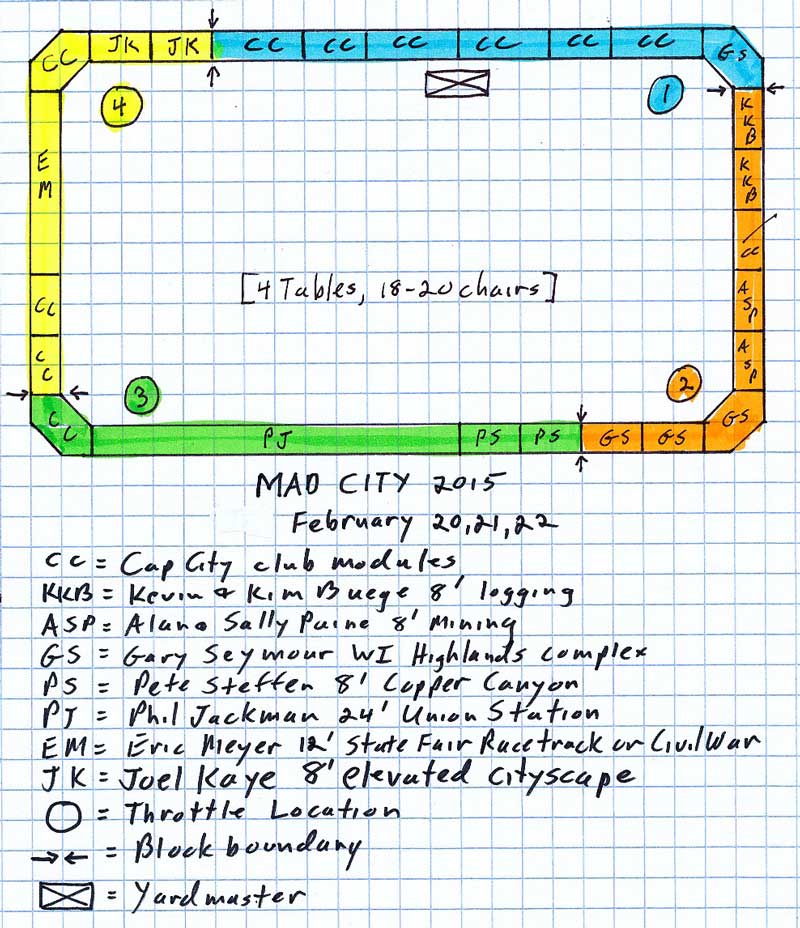 CC JK JK CC CC CC CC CC CC GS
4 1
E M
K K B
K K B
CC
[4 Tables, 18-20 chairs]
CC
A S P
C C
A S P
3 2
CC PJ PS PS GS GS GS
MAD CITY 2015
February 20,21,22
CC = Cap City club modules
KKB = Kevin & Kim Buege 8' logging
ASP = Alan & Sally Paine 8' Mining
GS = Gary Seymour WI Highlands complex
PS = Pete Steffen 8' Copper Canyon
PJ = Phil Jackman 24' Union Station
EM = Eric Meyer 12' State Fair Racetrack or Civil War
JK = Joel Kaye 8' elevated cityscape
= Throttle Location
= Block boundary
= Yardmaster